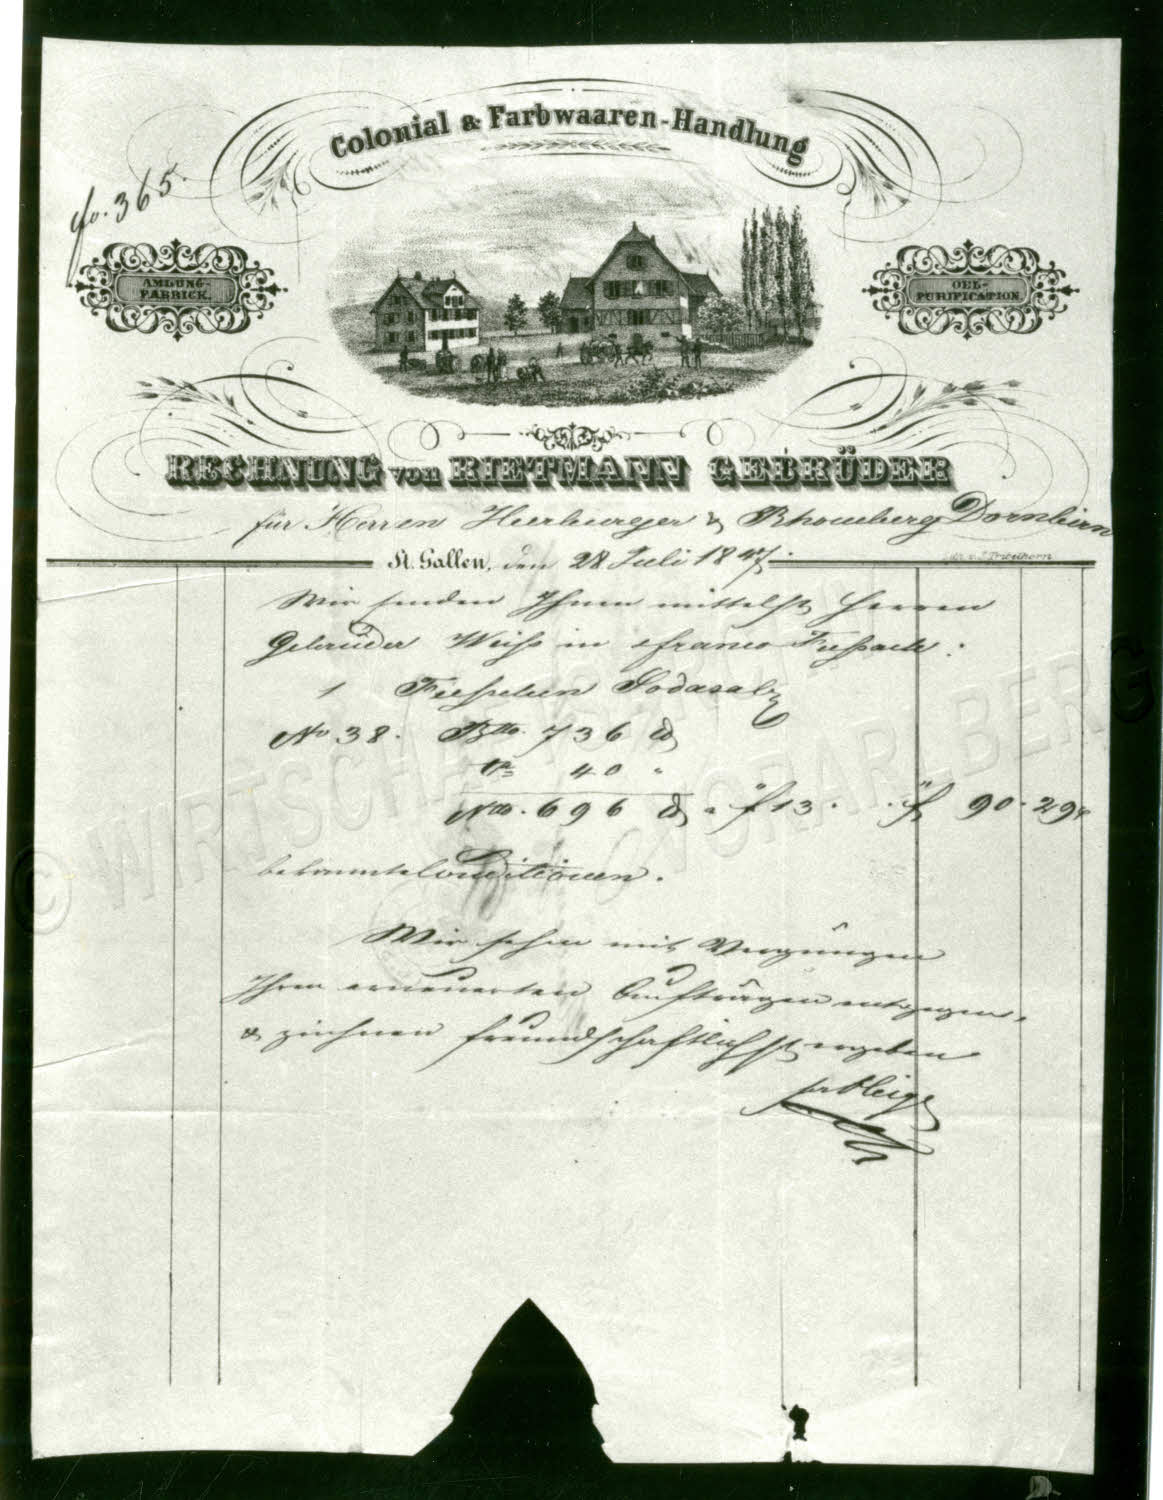 Colonial & Farbwaaren-Handlung
fo. 365.
AMLUNG-
FABRICK.
OEL-
PURIFICATION
RECHNUNG von RIETMANN GEBRÜDER
für Herren Herburger & Rhomberg Dornbirn
Lith. v. J. Tribelhorn
St. Gallen, den 28 Juli 1847.
Wir senden Ihnen mittelst Herren
Gebrüder Weiss in franco Fussach :
1 Fässchen Sodasalz
No 38. Btto. 736 ℔
Ta 40 "
Nto. 696 ℔ a f 13. . f 90. 29 x
bekannte Conditionen.
Wir sehen mit Vergnügen
Ihren erneuerten Aufträgen entgegen,
& zeichnen freundschaftlichst ergeben
© WIRTSCHAFTSARCHIV VORARLBERG